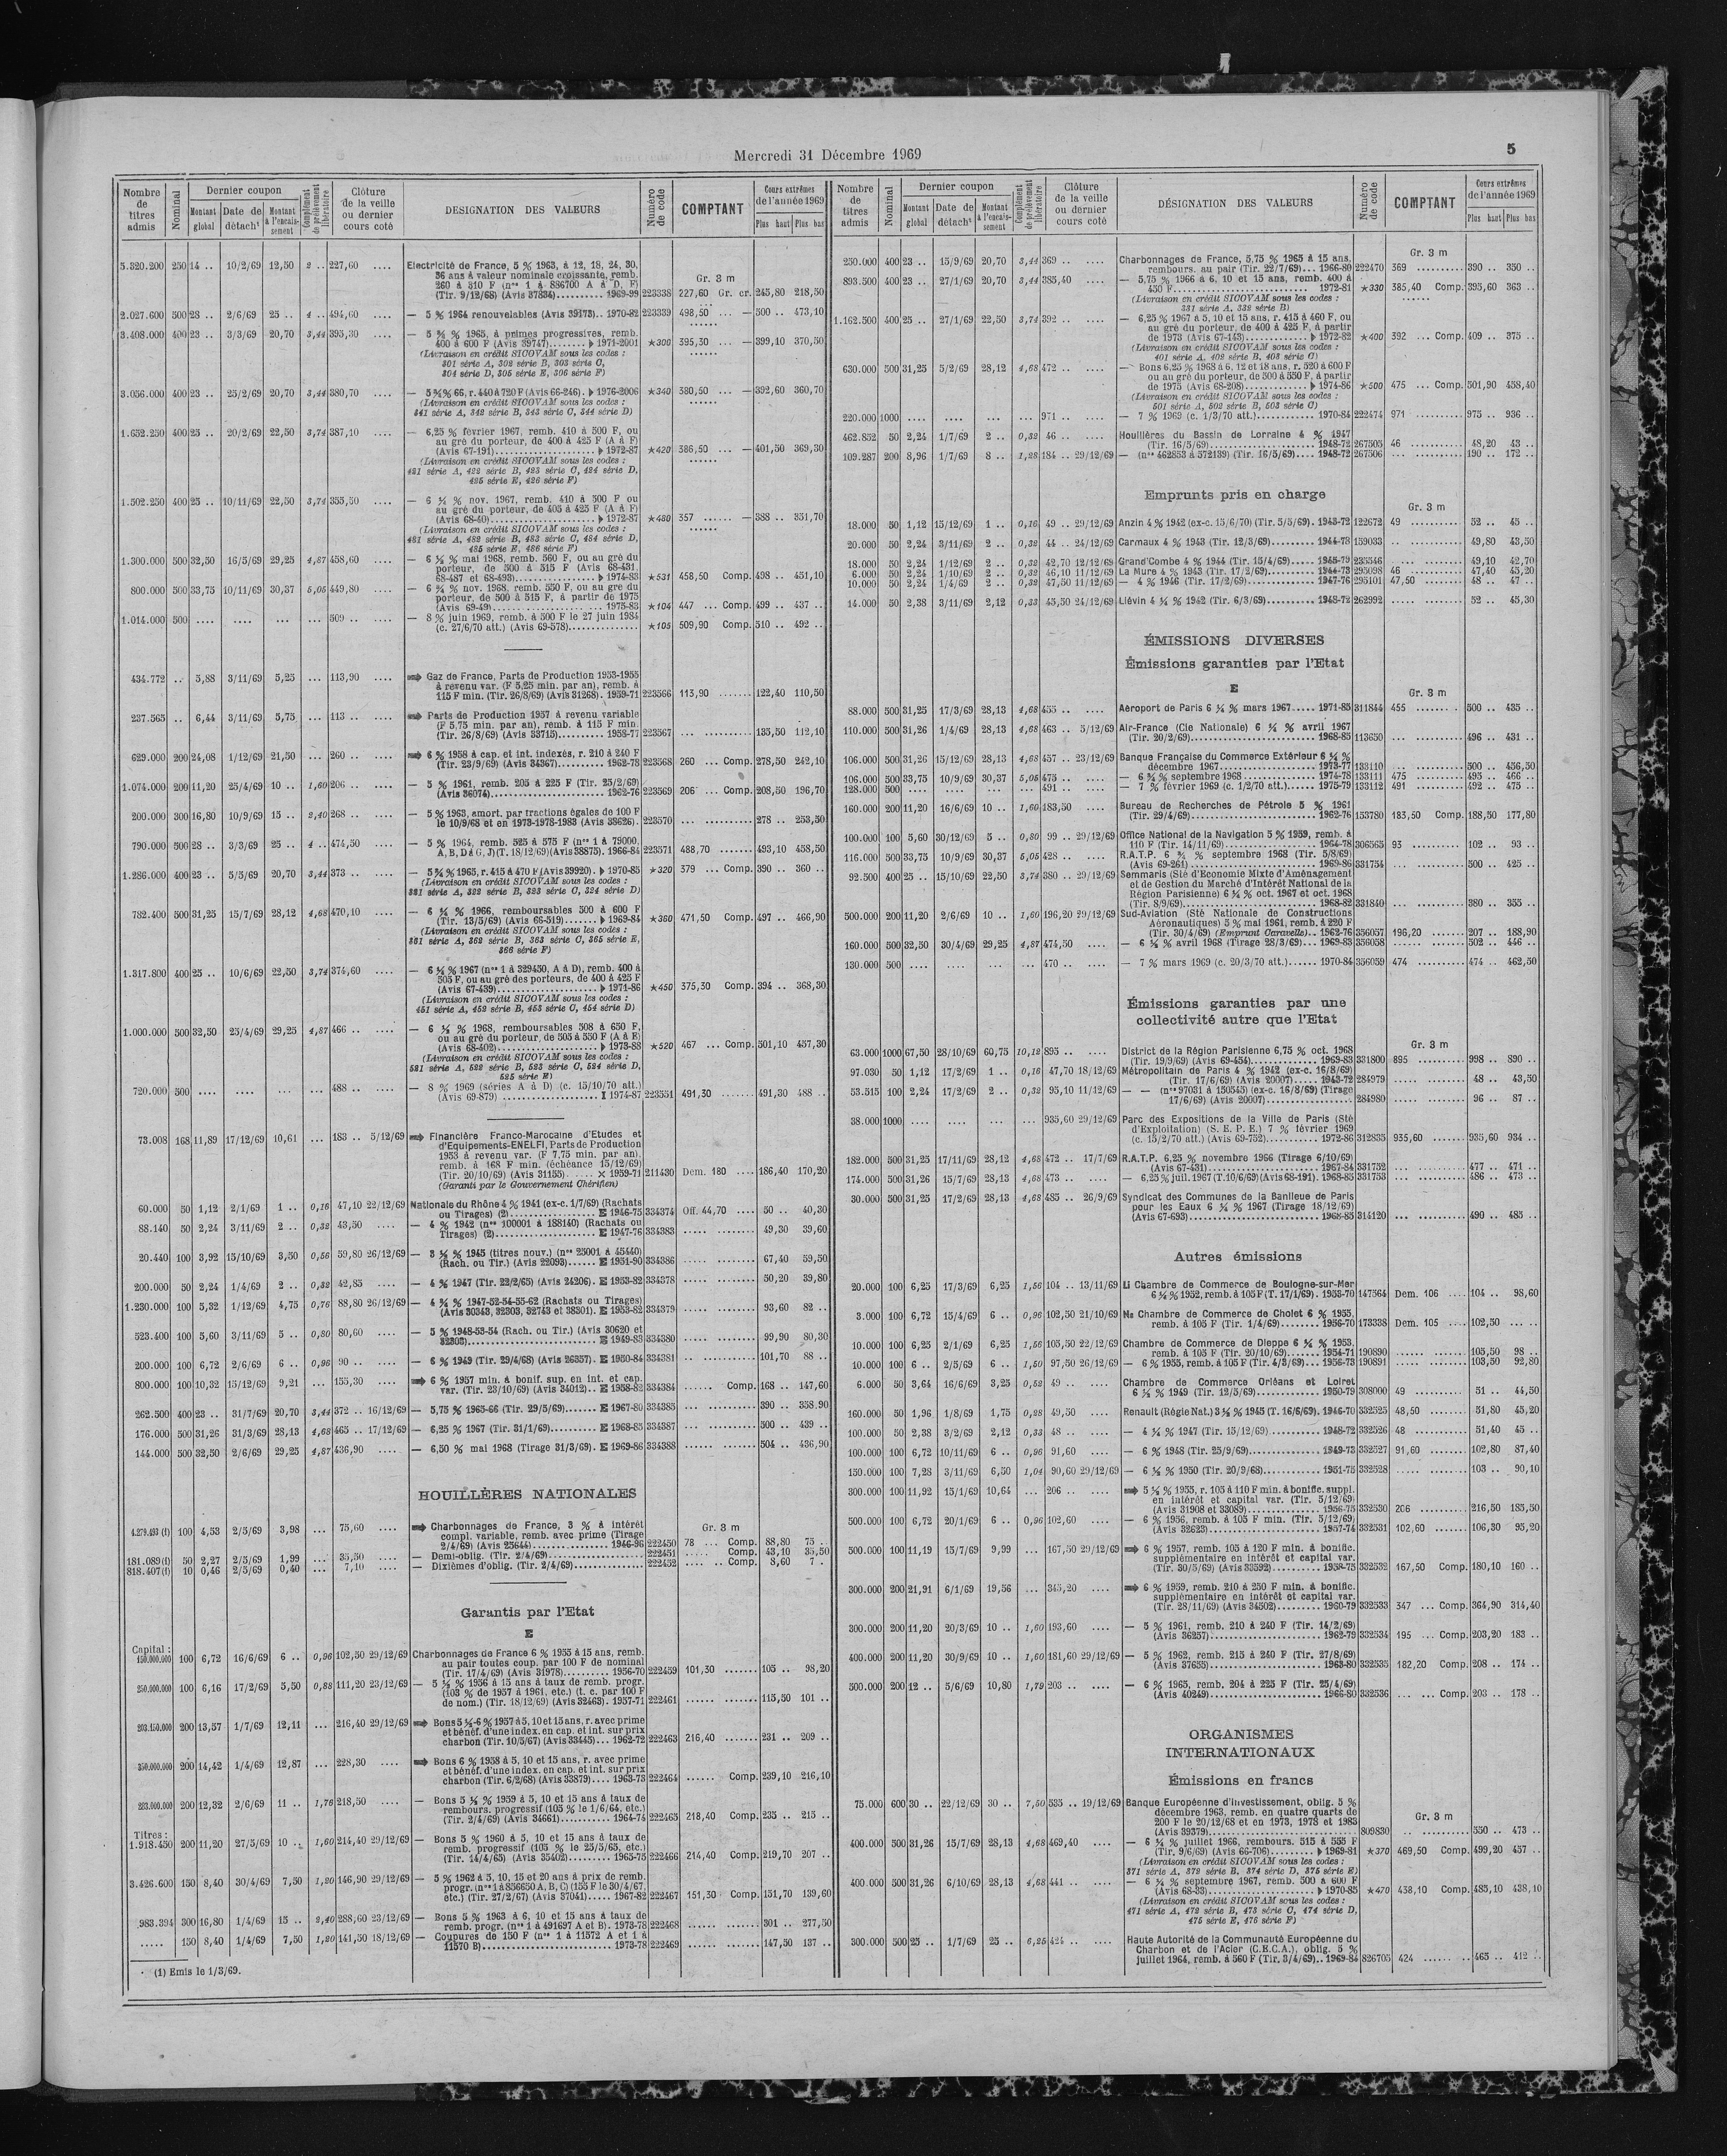 Mercredi 31 Décembre 1969
5
Nombre de titres admis | Nominal | Dernier coupon | Montant global | Date de détach¹ | Montant à l'encaissement | Complément de prélèvement libératoire | Clôture de la veille ou dernier cours coté | DESIGNATION DES VALEURS | Numéro de code | COMPTANT | Cours extrêmes de l'année 1969 | Plus haut | Plus bas
Gr. 3 m
5.320.200 250 14 .. 10/2/69 12,50 2 .. 227,60 .... Electricité de France, 5 % 1963, à 12, 18, 24, 30,
36 ans à valeur nominale croissante, remb.
260 à 310 F (nos 1 à 836700 A à D, F)
(Tir. 9/12/68) (Avis 37834) 1969-99 223338 227,60 Gr. cr. 245,80 218,50
2.027.600 500 28 .. 2/6/69 25 .. 4 .. 494,60 .... — 5 % 1964 renouvelables (Avis 39173).. 1970-82 223339 498,50 ... — 500 .. 473,10
3.408.000 400 23 .. 3/3/69 20,70 3,44 395,30 .... — 5 ¾ % 1965, à primes progressives, remb.
400 à 600 F (Avis 39747) 1971-2001 ★300 395,30 ... — 399,10 370,50
(Livraison en crédit SICOVAM sous les codes :
301 série A, 302 série B, 303 série C,
304 série D, 305 série E, 306 série F)
3.056.000 400 23 .. 25/2/69 20,70 3,44 380,70 .... — 5 ¾ % 66, r. 440 à 720 F (Avis 66-246). 1976-2006 ★340 380,50 ... — 392,60 360,70
(Livraison en crédit SICOVAM sous les codes :
341 série A, 342 série B, 343 série C, 344 série D)
1.652.250 400 25 .. 20/2/69 22,50 3,74 387,10 .... — 6,25 % février 1967, remb. 410 à 500 F, ou
au gré du porteur, de 400 à 425 F (A à F)
(Avis 67-191) 1972-87 ★420 386,50 ... — 401,50 369,30
(Livraison en crédit SICOVAM sous les codes :
421 série A, 422 série B, 423 série C, 424 série D,
425 série E, 426 série F)
1.502.250 400 25 .. 10/11/69 22,50 3,74 355,50 .... — 6 ¼ % nov. 1967, remb. 410 à 500 F ou
au gré du porteur, de 405 à 425 F (A à F)
(Avis 68-40) 1972-87 ★480 357 ...... — 388 .. 351,70
(Livraison en crédit SICOVAM sous les codes :
481 série A, 482 série B, 483 série C, 484 série D,
485 série E, 486 série F)
1.300.000 500 32,50 16/5/69 29,25 4,87 458,60 .... — 6 ½ % mai 1968, remb. 560 F, ou au gré du
porteur, de 500 à 515 F (Avis 68-431,
68-487 et 68-493) 1974-83 ★531 458,50 Comp. 498 .. 451,10
800.000 500 33,75 10/11/69 30,37 5,05 449,80 .... — 6 ¾ % nov. 1968, remb. 550 F, ou au gré du
porteur, de 500 à 515 F, à partir de 1975
(Avis 69-49) 1975-83 ★104 447 ... Comp. 499 .. 437 ..
1.014.000 500 .... .... ... ... 509 .. .... — 8 % juin 1969, remb. à 500 F le 27 juin 1984
(c. 27/6/70 att.) (Avis 69-578) ★105 509,90 Comp. 510 .. 492 ..
434.772 .. 5,88 3/11/69 5,25 ... 113,90 .... Gaz de France, Parts de Production 1953-1955
à revenu var. (F 5,25 min. par an), remb. à
115 F min. (Tir. 26/8/69) (Avis 31268). 1959-71 223566 113,90 ....... 122,40 110,50
237.565 .. 6,44 3/11/69 5,75 ... 113 .. .... Parts de Production 1957 à revenu variable
(F 5,75 min. par an), remb. à 115 F min.
(Tir. 26/8/69) (Avis 33715) 1958-77 223567 ... .......... 135,50 112,10
629.000 200 24,08 1/12/69 21,50 ... 260 .. .... 6 % 1958 à cap. et int. indexés, r. 210 à 240 F
(Tir. 23/9/69) (Avis 34367) 1962-78 223568 260 ... Comp. 278,50 242,10
1.074.000 200 11,20 25/4/69 10 .. 1,60 206 .. .... — 5 % 1961, remb. 205 à 225 F (Tir. 25/2/69)
(Avis 36074) 1962-76 223569 206 ... Comp. 208,50 196,70
200.000 300 16,80 10/9/69 15 .. 2,40 268 .. .... — 5 % 1963, amort. par tractions égales de 100 F
le 10/9/68 et en 1973-1978-1983 (Avis 38626). 223570 ... .......... 278 .. 253,50
790.000 500 28 .. 3/3/69 25 .. 4 .. 474,50 .... — 5 % 1964, remb. 525 à 575 F (nos 1 à 79000,
A, B, D à G, J) (T. 18/12/69) (Avis 38875). 1966-84 223571 488,70 ....... 493,10 458,50
1.286.000 400 23 .. 5/5/69 20,70 3,44 373 .. .... — 5 ¾ % 1965, r. 415 à 470 F (Avis 39920). 1970-85 ★320 379 ... Comp. 390 .. 360 ..
(Livraison en crédit SICOVAM sous les codes :
321 série A, 322 série B, 323 série C, 324 série D)
782.400 500 31,25 15/7/69 28,12 4,68 470,10 .... — 6 ¼ % 1966, remboursables 500 à 600 F
(Tir. 13/5/69) (Avis 66-519) 1969-84 ★360 471,50 Comp. 497 .. 466,90
(Livraison en crédit SICOVAM sous les codes :
361 série A, 362 série B, 363 série C, 365 série E,
366 série F)
1.317.800 400 25 .. 10/6/69 22,50 3,74 374,60 .... — 6 ¼ % 1967 (nos 1 à 329450, A à D), remb. 400 à
505 F, ou au gré des porteurs, de 400 à 425 F
(Avis 67-439) 1971-86 ★450 375,30 Comp. 394 .. 368,30
(Livraison en crédit SICOVAM sous les codes :
451 série A, 452 série B, 453 série C, 454 série D)
1.000.000 500 32,50 25/4/69 29,25 4,87 466 .. .... — 6 ½ % 1968, remboursables 508 à 650 F,
ou au gré du porteur, de 505 à 550 F (A à E)
(Avis 68-402) 1973-88 ★520 467 ... Comp. 501,10 457,30
(Livraison en crédit SICOVAM sous les codes :
521 série A, 522 série B, 523 série C, 524 série D,
525 série E)
720.000 500 .... .... ... ... 488 .. .... — 8 % 1969 (séries A à D) (c. 15/10/70 att.)
(Avis 69-879) I 1974-87 223551 491,30 ...... 491,30 488 ..
73.008 168 11,89 17/12/69 10,61 ... 183 .. 5/12/69 Financière Franco-Marocaine d'Etudes et
d'Equipements-ENELFI, Parts de Production
1953 à revenu var. (F 7,75 min. par an),
remb. à 168 F min. (échéance 15/12/69)
(Tir. 20/10/69) (Avis 31155) X 1959-71 211430 Dem. 180 .... 186,40 170,20
(Garanti par le Gouvernement Chérifien)
60.000 50 1,12 2/1/69 1 .. 0,16 47,10 22/12/69 Nationale du Rhône 4 % 1941 (ex-c. 1/7/69) (Rachats
ou Tirages) (2) E 1946-75 334374 Off. 44,70 .... 50 .. 40,30
88.140 50 2,24 3/11/69 2 .. 0,32 43,50 .... — 4 % 1942 (nos 100001 à 188140) (Rachats ou
Tirages) (2) E 1947-76 334383 ..... ........ 49,30 39,60
20.440 100 3,92 15/10/69 3,50 0,56 59,80 26/12/69 — 3 ½ % 1945 (titres nouv.) (nos 25001 à 45440)
(Rach. ou Tir.) (Avis 22093) E 1951-90 334386 ..... ........ 67,40 59,50
200.000 50 2,24 1/4/69 2 .. 0,32 42,85 .... — 4 % 1947 (Tir. 22/2/65) (Avis 24206). E 1953-82 334378 ..... ........ 50,20 39,80
1.230.000 100 5,32 1/12/69 4,75 0,76 88,80 26/12/69 — 4 ¾ % 1947-52-54-55-62 (Rachats ou Tirages)
(Avis 30343, 32303, 32743 et 38301). E 1953-82 334379 ..... ........ 93,60 82 ..
523.400 100 5,60 3/11/69 5 .. 0,80 80,60 .... — 5 % 1948-53-54 (Rach. ou Tir.) (Avis 30620 et
32303) E 1949-83 334380 ..... ........ 99,90 80,30
200.000 100 6,72 2/6/69 6 .. 0,96 90 .. .... — 6 % 1949 (Tir. 29/4/68) (Avis 26357). E 1950-84 334381 .. ........ 101,70 88 ..
800.000 100 10,32 15/12/69 9,21 ... 155,30 .... 6 % 1957 min. à bonif. sup. en int. et cap.
var. (Tir. 23/10/69) (Avis 34012).. E 1958-82 334384 ...... Comp. 168 .. 147,60
262.500 400 23 .. 31/7/69 20,70 3,44 372 .. 16/12/69 — 5,75 % 1965-66 (Tir. 29/5/69) E 1967-80 334385 ...... ....... 390 .. 358,90
176.000 500 31,26 31/3/69 28,13 4,68 465 .. 17/12/69 — 6,25 % 1967 (Tir. 31/1/69) E 1968-85 334387 ...... ....... 500 .. 439 ..
144.000 500 32,50 2/6/69 29,25 4,87 436,90 .... — 6,50 % mai 1968 (Tirage 31/3/69). E 1969-86 334388 ...... ....... 504 .. 436,90
HOUILLÈRES NATIONALES
Gr. 3 m
4.279.493 (1) 100 4,53 2/5/69 3,98 ... 75,60 .... Charbonnages de France, 3 % à intérêt
compl. variable, remb. avec prime (Tirage
2/4/69) (Avis 25644) 1946-96 222450 78 ... Comp. 88,80 75 ..
181.089 (1) 50 2,27 2/5/69 1,99 ... 35,50 .... — Demi-oblig. (Tir. 2/4/69) 222451 ..... Comp. 43,10 35,50
818.407 (1) 10 0,46 2/5/69 0,40 ... 7,10 .... — Dixièmes d'oblig. (Tir. 2/4/69) 222452 .... .. Comp. 8,60 7 ..
Garantis par l'Etat
E
Capital :
150.000.000 100 6,72 16/6/69 6 .. 0,96 102,50 29/12/69 Charbonnages de France 6 % 1955 à 15 ans, remb.
au pair toutes coup. par 100 F de nominal
(Tir. 17/4/69) (Avis 31978) 1956-70 222459 101,30 ....... 105 .. 98,20
250.000.000 100 6,16 17/2/69 5,50 0,88 111,20 23/12/69 — 5 ½ % 1956 à 15 ans à taux de remb. progr.
(103 % de 1957 à 1961, etc.) (t. c. par 100 F
de nom.) (Tir. 18/12/69) (Avis 32463). 1957-71 222461 ...... ....... 115,50 101 ..
203.150.000 200 13,57 1/7/69 12,11 ... 216,40 29/12/69 Bons 5 ½-6 % 1957 à 5, 10 et 15 ans, r. avec prime
et bénéf. d'une index. en cap. et int. sur prix
charbon (Tir. 10/5/67) (Avis 33445)... 1962-72 222463 216,40 ....... 231 .. 209 ..
350.000.000 200 14,42 1/4/69 12,87 ... 228,30 .... Bons 6 % 1958 à 5, 10 et 15 ans, r. avec prime
et bénéf. d'une index. en cap. et int. sur prix
charbon (Tir. 6/2/68) (Avis 33879).... 1963-73 222464 ...... Comp. 239,10 216,10
283.000.000 200 12,32 2/6/69 11 .. 1,76 218,50 .... — Bons 5 ½ % 1959 à 5, 10 et 15 ans à taux de
rembours. progressif (105 % le 1/6/64, etc.)
(Tir. 2/4/69) (Avis 34661) 1964-74 222465 218,40 Comp. 235 .. 215 ..
Titres :
1.918.450 200 11,20 27/5/69 10 .. 1,60 214,40 29/12/69 — Bons 5 % 1960 à 5, 10 et 15 ans à taux de
remb. progressif (105 % le 25/5/65, etc.)
(Tir. 14/4/65) (Avis 35402) 1965-75 222466 214,40 Comp. 219,70 207 ..
3.426.600 150 8,40 30/4/69 7,50 1,20 146,90 29/12/69 — 5 % 1962 à 5, 10, 15 et 20 ans à prix de remb.
progr. (nos 1 à 856650 A, B, C) (155 F le 30/4/67,
etc.) (Tir. 27/2/67) (Avis 37041) 1967-82 222467 151,30 Comp. 151,70 139,60
983.394 300 16,80 1/4/69 15 .. 2,40 288,60 23/12/69 — Bons 5 % 1963 à 6, 10 et 15 ans à taux de
remb. progr. (nos 1 à 491697 A et B). 1973-78 222468 ...... ....... 301 .. 277,50
..... 150 8,40 1/4/69 7,50 1,20 141,50 18/12/69 — Coupures de 150 F (nos 1 à 11572 A et 1 à
11570 B) 1973-78 222469 ...... ....... 147,50 137 ..
(1) Emis le 1/3/69.
Nombre de titres admis | Nominal | Dernier coupon | Montant global | Date de détach¹ | Montant à l'encaissement | Complément de prélèvement libératoire | Clôture de la veille ou dernier cours coté | DÉSIGNATION DES VALEURS | Numéro de code | COMPTANT | Cours extrêmes de l'année 1969 | Plus haut | Plus bas
Gr. 3 m
250.000 400 23 .. 15/9/69 20,70 3,44 369 .. .... Charbonnages de France, 5,75 % 1965 à 15 ans,
rembours. au pair (Tir. 22/7/69)... 1966-80 222470 369 .......... 390 .. 350 ..
893.500 400 23 .. 27/1/69 20,70 3,44 385,40 .... — 5,75 % 1966 à 6, 10 et 15 ans, remb. 400 à
450 F 1972-81 ★330 385,40 Comp. 395,60 363 ..
(Livraison en crédit SICOVAM sous les codes :
331 série A, 332 série B)
1.162.500 400 25 .. 27/1/69 22,50 3,74 392 .. .... — 6,25 % 1967 à 5, 10 et 15 ans, r. 415 à 460 F, ou
au gré du porteur, de 400 à 425 F, à partir
de 1973 (Avis 67-143) 1972-82 ★400 392 ... Comp. 409 .. 375 ..
(Livraison en crédit SICOVAM sous les codes :
401 série A, 402 série B, 403 série C)
630.000 500 31,25 5/2/69 28,12 4,68 472 .. .... — Bons 6,25 % 1968 à 6, 12 et 18 ans, r. 520 à 600 F
ou au gré du porteur, de 500 à 550 F, à partir
de 1975 (Avis 68-208) 1974-86 ★500 475 ... Comp. 501,90 458,40
(Livraison en crédit SICOVAM sous les codes :
501 série A, 502 série B, 503 série C)
220.000 1000 .... .... ... ... 971 .. .... — 7 % 1969 (c. 1/3/70 att.) 1970-84 222474 971 .......... 975 .. 936 ..
462.852 50 2,24 1/7/69 2 .. 0,32 46 .. .... Houillères du Bassin de Lorraine 4 % 1947
(Tir. 16/5/69) 1948-72 267505 46 .......... 48,20 43 ..
109.287 200 8,96 1/7/69 8 .. 1,28 184 .. 29/12/69 — (nos 462853 à 572139) (Tir. 16/5/69).... 1948-72 267506 ... .......... 190 .. 172 ..
Emprunts pris en charge
Gr. 3 m
18.000 50 1,12 15/12/69 1 .. 0,16 49 .. 29/12/69 Anzin 4 % 1942 (ex-c. 15/6/70) (Tir. 5/5/69). 1943-72 122672 49 .......... 52 .. 45 ..
20.000 50 2,24 3/11/69 2 .. 0,32 44 .. 24/12/69 Carmaux 4 % 1943 (Tir. 12/3/69) 1944-73 159033 .. .......... 49,80 43,50
18.000 50 2,24 1/12/69 2 .. 0,32 42,70 12/12/69 Grand'Combe 4 % 1944 (Tir. 15/4/69) 1945-79 235546 .. .......... 49,10 42,70
6.000 50 2,24 1/10/69 2 .. 0,32 46,10 11/12/69 La Mure 4 % 1943 (Tir. 17/2/69) 1944-73 295098 46 .......... 47,40 45,20
10.000 50 2,24 1/4/69 2 .. 0,32 47,50 11/12/69 — 4 % 1946 (Tir. 17/2/69) 1947-76 295101 47,50 ........ 48 .. 47 ..
14.000 50 2,38 3/11/69 2,12 0,33 45,50 24/12/69 Liévin 4 ¼ % 1942 (Tir. 6/3/69) 1948-72 262992 .... ........ 52 .. 45,30
ÉMISSIONS DIVERSES
Émissions garanties par l'Etat
E
Gr. 3 m
88.000 500 31,25 17/3/69 28,13 4,68 455 .. .... Aéroport de Paris 6 ¼ % mars 1967 1971-85 311844 455 ........ 500 .. 435 ..
110.000 500 31,26 1/4/69 28,13 4,68 463 .. 5/12/69 Air-France (Cie Nationale) 6 ¼ % avril 1967
(Tir. 20/2/69) 1968-85 113650 ... .......... 496 .. 431 ..
106.000 500 31,26 15/12/69 28,13 4,68 457 .. 23/12/69 Banque Française du Commerce Extérieur 6 ¼ %
décembre 1967 1973-77 133110 ... .......... 500 .. 456,50
106.000 500 33,75 10/9/69 30,37 5,05 475 .. .... — 6 ¾ % septembre 1968 1974-78 133111 475 .......... 495 .. 466 ..
128.000 500 .... .... ... ... 491 .. .... — 7 % février 1969 (c. 1/2/70 att.) 1975-79 133112 491 .......... 492 .. 475 ..
160.000 200 11,20 16/6/69 10 .. 1,60 183,50 .... Bureau de Recherches de Pétrole 5 % 1961
(Tir. 29/4/69) 1962-76 153780 183,50 Comp. 188,50 177,80
100.000 100 5,60 30/12/69 5 .. 0,80 99 .. 29/12/69 Office National de la Navigation 5 % 1959, remb. à
110 F (Tir. 14/11/69) 1964-78 306565 93 .......... 102 .. 93 ..
116.000 500 33,75 10/9/69 30,37 5,05 428 .. .... R.A.T.P. 6 ¾ % septembre 1968 (Tir. 5/8/69)
(Avis 69-261) 1969-86 331754 ... .......... 500 .. 425 ..
92.500 400 25 .. 15/10/69 22,50 3,74 380 .. 29/12/69 Semmaris (Sté d'Economie Mixte d'Aménagement
et de Gestion du Marché d'Intérêt National de la
Région Parisienne) 6 ¼ % oct. 1967 et oct. 1968
(Tir. 8/9/69) 1968-82 331840 ... .......... 380 .. 355 ..
500.000 200 11,20 2/6/69 10 .. 1,60 196,20 29/12/69 Sud-Aviation (Sté Nationale de Constructions
Aéronautiques) 5 % mai 1961, remb. à 220 F
(Tir. 30/4/69) (Emprunt Caravelle).. 1962-76 356057 196,20 ....... 207 .. 188,90
160.000 500 32,50 30/4/69 29,25 4,87 474,50 .... — 6 ½ % avril 1968 (Tirage 28/3/69)... 1969-83 356058 ...... ....... 502 .. 446 ..
130.000 500 .... .... ... ... 470 .. .... — 7 % mars 1969 (c. 20/3/70 att.) 1970-84 356059 474 .......... 474 .. 462,50
Émissions garanties par une
collectivité autre que l'Etat
Gr. 3 m
63.000 1000 67,50 28/10/69 60,75 10,12 895 .. .... District de la Région Parisienne 6,75 % oct. 1968
(Tir. 19/9/69) (Avis 69-454) 1969-83 331800 895 .......... 998 .. 890 ..
97.030 50 1,12 17/2/69 1 .. 0,16 47,70 18/12/69 Métropolitain de Paris 4 % 1942 (ex-c. 16/8/69)
(Tir. 17/6/69) (Avis 20007) 1943-72 284979 ..... ........ 48 .. 43,50
53.515 100 2,24 17/2/69 2 .. 0,32 95,10 11/12/69 — — (nos 97031 à 150545) (ex-c. 16/8/69) (Tirage
17/6/69) (Avis 20007) 284980 ..... ........ 96 .. 87 ..
38.000 1000 .... .... ... ... 935,60 29/12/69 Parc des Expositions de la Ville de Paris (Sté
d'Exploitation) (S. E. P. E.) 7 % février 1969
(c. 15/2/70 att.) (Avis 69-752) 1972-86 312835 935,60 ........ 935,60 934 ..
182.000 500 31,25 17/11/69 28,12 4,68 472 .. 17/7/69 R.A.T.P. 6,25 % novembre 1966 (Tirage 6/10/69)
(Avis 67-431) 1967-84 331752 ... .......... 477 .. 471 ..
174.000 500 31,26 15/7/69 28,13 4,68 473 .. .... — 6,25 % juil. 1967 (T. 10/6/69) (Avis 68-191). 1968-85 331753 ... .......... 486 .. 473 ..
30.000 500 31,25 17/2/69 28,13 4,68 485 .. 26/9/69 Syndicat des Communes de la Banlieue de Paris
pour les Eaux 6 ¼ % 1967 (Tirage 18/12/69)
(Avis 67-693) 1968-85 314120 ... .......... 490 .. 485 ..
Autres émissions
20.000 100 6,25 17/3/69 6,25 1,56 104 .. 13/11/69 Li Chambre de Commerce de Boulogne-sur-Mer
6 ¼ % 1952, remb. à 105 F (T. 17/1/69). 1953-70 147564 Dem. 106 .... 104 .. 98,60
3.000 100 6,72 15/4/69 6 .. 0,96 102,50 21/10/69 Na Chambre de Commerce de Cholet 6 % 1955,
remb. à 105 F (Tir. 1/4/69) 1956-70 173338 Dem. 105 .... 102,50 ...
10.000 100 6,25 2/1/69 6,25 1,56 105,50 22/12/69 Chambre de Commerce de Dieppe 6 ¼ % 1953,
remb. à 105 F (Tir. 20/10/69) 1954-71 190890 ..... ........ 105,50 98 ..
10.000 100 6 .. 2/5/69 6 .. 1,50 97,50 26/12/69 — 6 % 1955, remb. à 105 F (Tir. 4/3/69)... 1956-73 190891 ..... ........ 103,50 92,80
6.000 50 3,64 16/6/69 3,25 0,52 49 .. .... Chambre de Commerce Orléans et Loiret
6 ½ % 1949 (Tir. 12/5/69) 1950-79 308000 49 .......... 51 .. 44,50
160.000 50 1,96 1/8/69 1,75 0,28 49,50 .... Renault (Régie Nat.) 3 ½ % 1945 (T. 16/6/69). 1946-70 332525 48,50 ........ 51,80 45,20
100.000 50 2,38 3/2/69 2,12 0,33 48 .. .... — 4 ¼ % 1947 (Tir. 15/12/69) 1948-72 332526 48 .......... 51,40 45 ..
100.000 100 6,72 10/11/69 6 .. 0,96 91,60 .... — 6 % 1948 (Tir. 25/9/69) 1949-73 332527 91,60 ........ 102,80 87,40
150.000 100 7,28 3/11/69 6,50 1,04 90,60 29/12/69 — 6 ½ % 1950 (Tir. 20/9/68) 1951-75 332528 ..... ........ 103 .. 90,10
300.000 100 11,92 15/1/69 10,64 ... 206 .. .... 5 ½ % 1955, r. 105 à 110 F min. à bonific. suppl.
en intérêt et capital var. (Tir. 5/12/69)
(Avis 31908 et 33089) 1956-75 332530 206 .......... 216,50 185,50
500.000 100 6,72 20/1/69 6 .. 0,96 102,60 .... — 6 % 1956, remb. à 105 F min. (Tir. 5/12/69)
(Avis 32623) 1957-74 332531 102,60 ....... 106,30 95,20
500.000 100 11,19 15/7/69 9,99 ... 167,50 29/12/69 6 % 1957, remb. 105 à 120 F min. à bonific.
supplémentaire en intérêt et capital var.
(Tir. 30/5/69) (Avis 33592) 1958-75 332532 167,50 Comp. 180,10 160 ..
300.000 200 21,91 6/1/69 19,56 ... 345,20 .... 6 % 1959, remb. 210 à 250 F min. à bonific.
supplémentaire en intérêt et capital var.
(Tir. 28/11/69) (Avis 34502) 1960-79 332533 347 ... Comp. 364,90 314,40
300.000 200 11,20 20/3/69 10 .. 1,60 193,60 .... — 5 % 1961, remb. 210 à 240 F (Tir. 14/2/69)
(Avis 36257) 1962-79 332534 195 ... Comp. 203,20 183 ..
400.000 200 11,20 30/9/69 10 .. 1,60 181,60 29/12/69 — 5 % 1962, remb. 215 à 240 F (Tir. 27/8/69)
(Avis 37655) 1963-80 332535 182,20 Comp. 208 .. 174 ..
500.000 200 12 .. 5/6/69 10,80 1,79 203 .. .... — 6 % 1965, remb. 204 à 225 F (Tir. 25/4/69)
(Avis 40249) 1966-80 332536 ... ... Comp. 203 .. 178 ..
ORGANISMES
INTERNATIONAUX
Émissions en francs
Gr. 3 m
75.000 600 30 .. 22/12/69 30 .. 7,50 535 .. 19/12/69 Banque Européenne d'Investissement, oblig. 5 %
décembre 1963, remb. en quatre quarts de
200 F le 20/12/68 et en 1973, 1978 et 1983
(Avis 39379) 809830 .. ........ 550 .. 473 ..
400.000 500 31,26 15/7/69 28,13 4,68 469,40 .... — 6 ¼ % juillet 1966, rembours. 515 à 555 F
(Tir. 9/6/69) (Avis 66-706) 1969-81 ★370 469,50 Comp. 499,20 457 ..
(Livraison en crédit SICOVAM sous les codes :
371 série A, 372 série B, 374 série D, 375 série E)
400.000 500 31,26 6/10/69 28,13 4,68 441 .. .... — 6 ¼ % septembre 1967, remb. 500 à 600 F
(Avis 68-33) 1970-85 ★470 438,10 Comp. 485,10 438,10
(Livraison en crédit SICOVAM sous les codes :
471 série A, 472 série B, 473 série C, 474 série D,
475 série E, 476 série F)
300.000 500 25 .. 1/7/69 25 .. 6,25 424 .. .... Haute Autorité de la Communauté Européenne du
Charbon et de l'Acier (C.E.C.A.), oblig. 5 %
juillet 1964, remb. à 560 F (Tir. 3/4/69).. 1969-84 826705 424 ...... .. 465 .. 412 ..